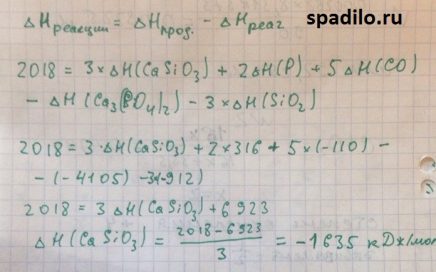 spadilo.ru
ΔHреакции = ΔHпрод. - ΔHреаг
2018 = 3×ΔH(CaSiO₃) + 2ΔH(P) + 5ΔH(CO)
- ΔH(Ca₃(PO₄)₂) - 3×ΔH(SiO₂)
2018 = 3·ΔH(CaSiO₃) + 2×316 + 5×(-110) -
- (-4105) - 3×(-912)
2018 = 3ΔH(CaSiO₃) + 6923
ΔH(CaSiO₃) = (2018 - 6923)/3 = -1635 кДж/мол